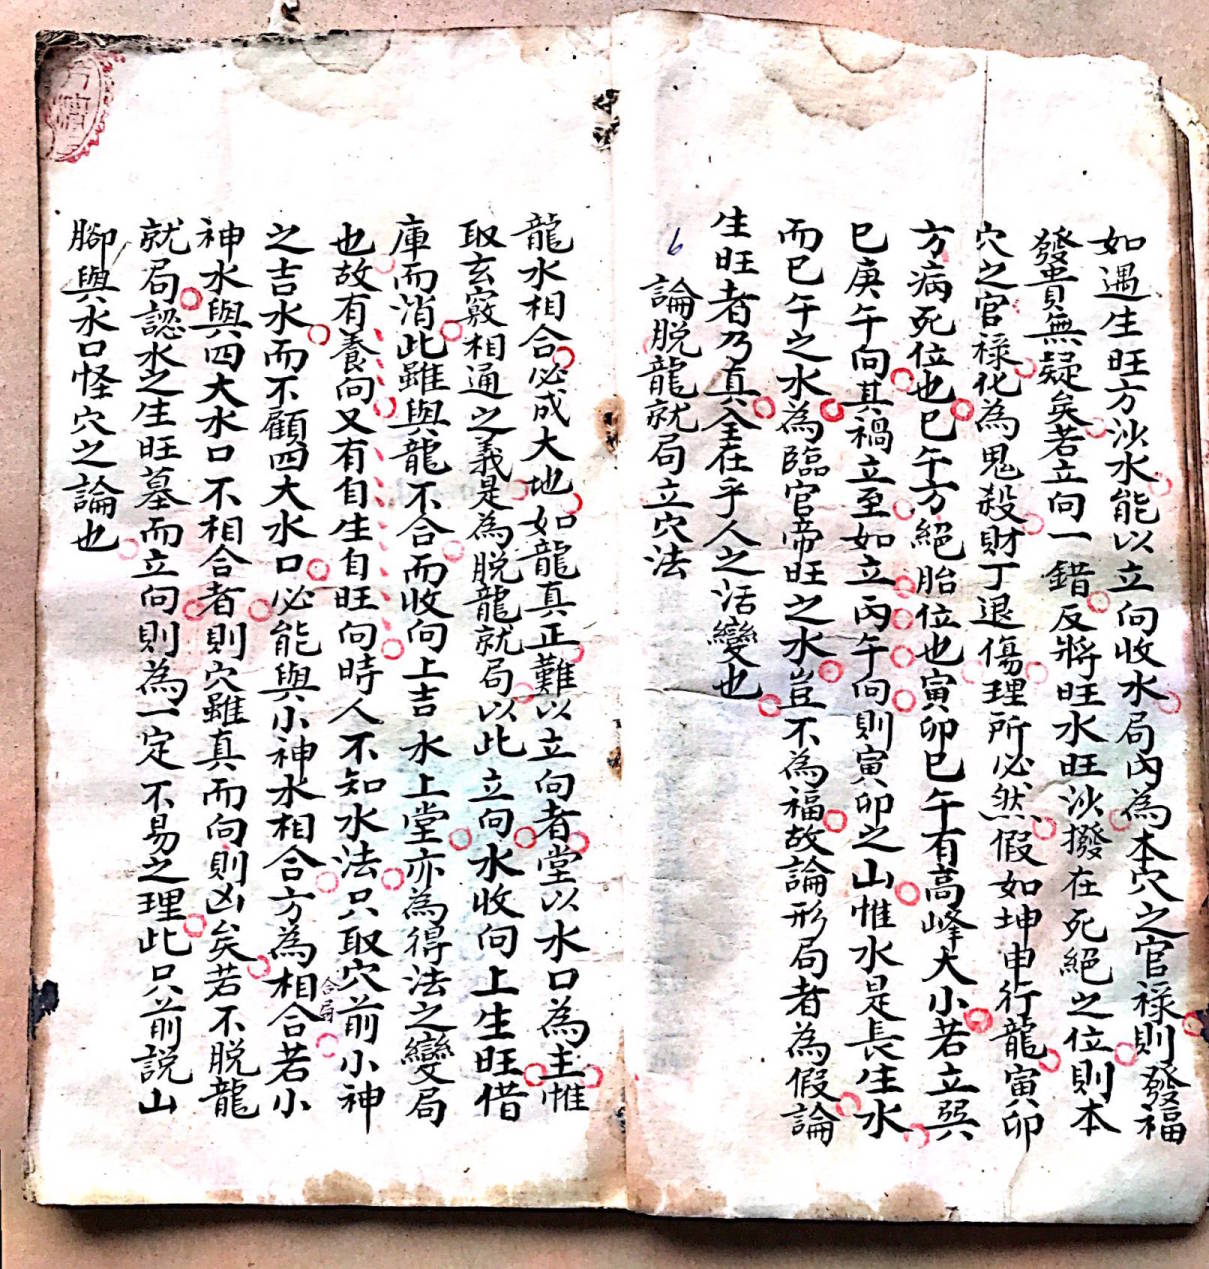 如遇生旺方沙水能以立向收水局內為本穴之官祿則發福
發貴無疑矣若立向一錯反將旺水旺沙撥在死絕之位則本
穴之官祿化為鬼殺財丁退傷理所必然假如坤申行龍寅卯
方病死位也巳午方絕胎位也寅卯巳午有高峰大小若立巽
巳庚午向其禍立至如立丙午向則寅卯之山惟水是長生水
而巳午之水為臨官帝旺之水豈不為福故論形局者為假論
生旺者乃真全在乎人之活變也
6 論脫龍就局立穴法
龍水相合必成大地如龍真正難以立向者堂以水口為主惟
取玄竅相通之義是為脫龍就局以此立向水收向上生旺借
庫而消此雖與龍不合而收向上吉水上堂亦為得法之變局
也故有養向又有自生自旺向時人不知水法只取穴前小神
之吉水而不顧四大水口必能與小神水相合方為相合合局若小
神水與四大水口不相合者則穴雖真而向則凶矣若不脫龍
就局認水之生旺墓而立向則為一定不易之理此只前說山
腳與水口怪穴之論也